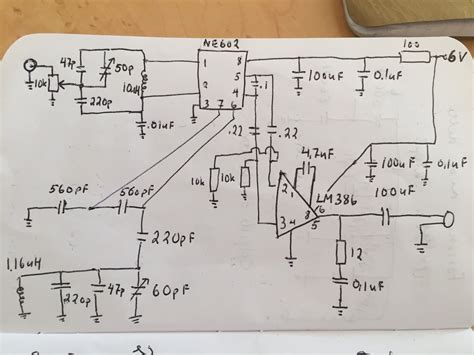 NE602
100
6V
47p
50p
10k
10uH
220p
.01uF
1
2
3
7
6
8
5
4
.1
100uF
0.1uF
.22
.22
10k
10k
4,7uF
LM386
2
1
8
6
3
4
5
100uF
0,1uF
100uF
560pF
560pF
220pF
12
0,1uF
1.16uH
220p
47p
60pF